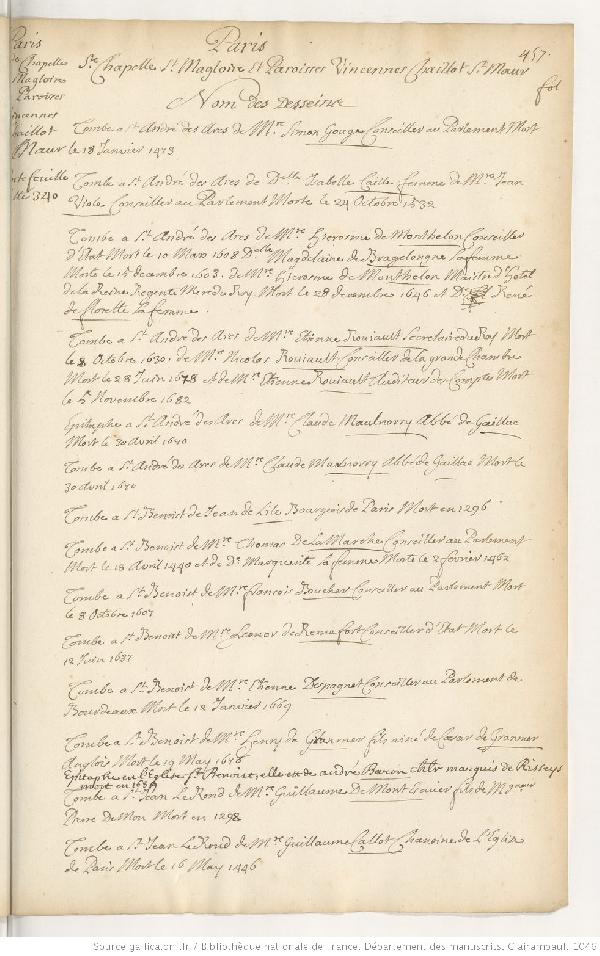 Paris
Chapelle
Magloire
Paroisses
Vincennes
Chaillot
Maur
3240
Paris
457.
Ste Chapelle St Magloire Et Paroisses Vincennes Chaillot St Maur
fol
Nom des Desseins
Tombe a St André des Arcs de Mre Simon Gouge Conseiller au Parlement Mort
le 18 Janvier 1473
Tombe a St André des Arcs de Delle Isabelle Caille femme de Mre Jean
Viole Conseiller au Parlement Morte le 24 Octobre 1532
Tombe a St André des Arcs de Mre Hierosme de Monthelon Conseiller
d'Etat Mort le 10 Mars 1608 Delle Magdelaine de Bragelongne sa femme
Morte le 15 decembre 1603. de Mre Hierosme de Monthelon Maitre d'hotel
de la Reine Regente Mere du Roy Mort le 28 decembre 1646 et De René
de Florette sa femme.
Tombe a St André des Arcs de Mre Etienne Rouiault Secretaire du Roy Mort
le 8 Octobre 1630. de Mre Nicolas Rouiault Conseiller de la grande Chambre
Mort le 28 Juin 1678 et de Mre Etienne Rouiault Auditeur des Comptes Mort
le 5 Novembre 1682
Epitaphe a St André des Arcs de Mre Claude Maulnorry Abbé de Gaillac
Mort le 30 avril 1640
Tombe a St André des Arcs de Mre Claude Maulnorry Abbé de Gaillac Mort le
30 avril 1640
Tombe a St Benoist de Jean de Lile Bourgeois de Paris Mort en 1296
Tombe a St Benoist de Mre Thomas De La Marche Conseiller au Parlement
Mort le 18 Avril 1440 et de De Marguerite sa femme Morte le 2 fevrier 1462
Tombe a St Benoist de Mre francois Boucher Conseiller au Parlement Mort
le 8 Octobre 1607
Tombe a St Benoist de Mre Leonor de Remefort Conseiller d'Etat Mort le
12 Juin 1637
Tombe a St Benoist de Mre Etienne Despagnet Conseiller au Parlement de
Bourdeaux Mort le 12 Janvier 1669
Tombe a St Benoist de Mre Henry de Granmer fils ainé de Cesar de Granmer
Anglois Mort le 19 May 1676
Epitaphe en l'Eglise St Benoist, elle est de andré Baron marquis de Risseys
mort en
Tombe a St Jean Le Rond de Mre Guillaume De Mont fils de
Mort en 1298
Tombe a St Jean Le Rond de Mre Guillaume Callot Chanoine de L'Eglise
de Paris Mort le 16 May 1446
Source gallica.bnf.fr / Bibliothèque nationale de France. Département des manuscrits. Clairambault. 1046